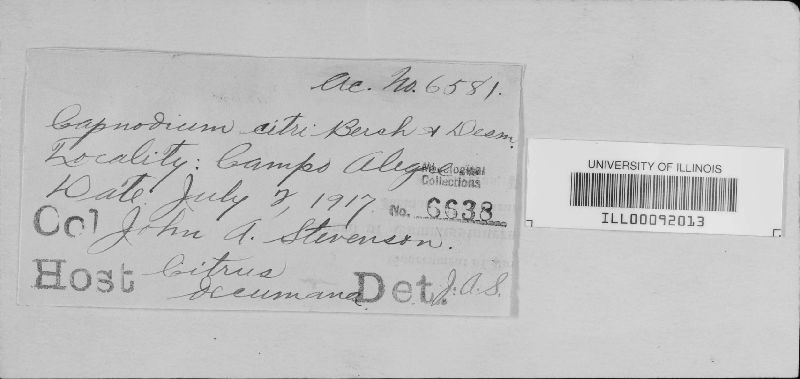 Ac. No. 6581.
Capnodium citri Berch & Desm.
Locality: Campo Alegre
Mycological
Collections
Date July 2, 1917
No. 6638
Col John A. Stevenson.
Host Citrus
decumana Det. J.A.S.
UNIVERSITY OF ILLINOIS
ILL00092013